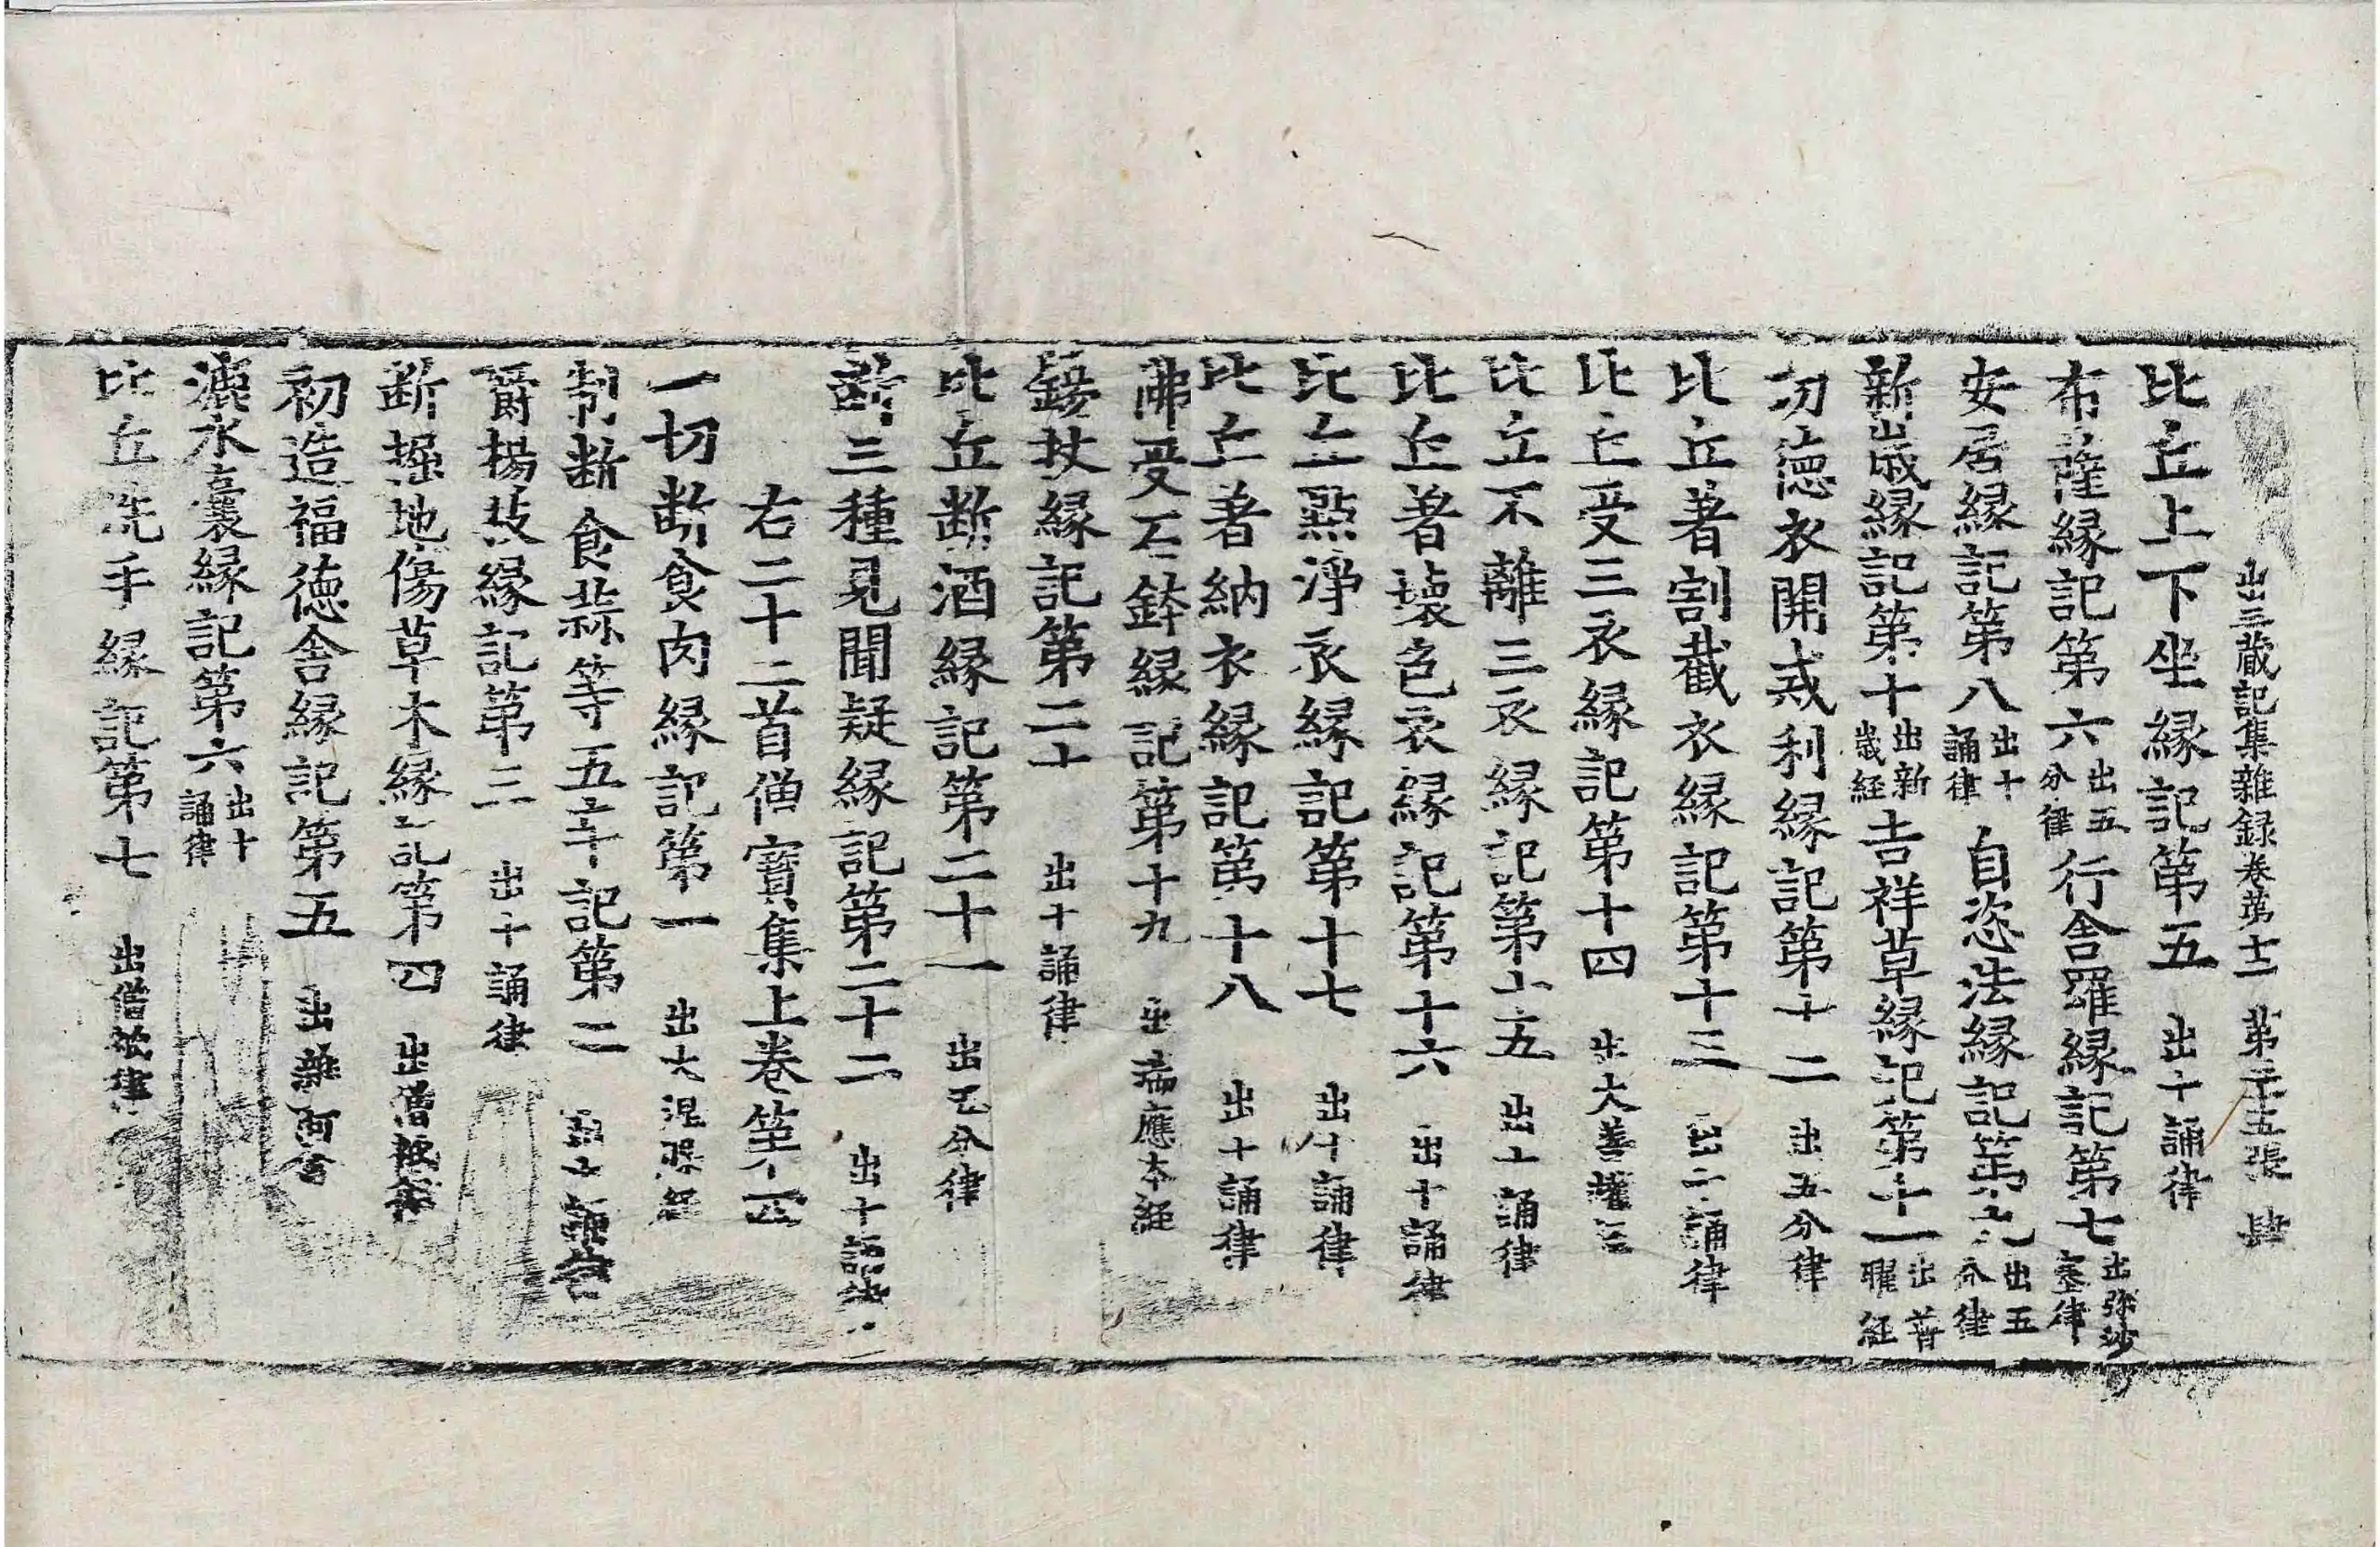 出三蔵記集雜録卷第十二 第二十五張 肆
比丘上下坐縁記第五 出十誦律
布薩縁記第六 出五分律 行舎羅縁記第七 出弥沙塞律
安居縁記第八 出十誦律 自恣法縁記第九 出五分律
新歳縁記第十 出新歳経 吉祥草縁記第十一 出普曜経
功徳衣開戒利縁記第十二 出五分律
比丘著割截衣縁記第十三 出十誦律
比丘受三衣縁記第十四 出大善權経
比丘不離三衣縁記第十五 出十誦律
比丘著壊色衣縁記第十六 出十誦律
比丘點淨衣縁記第十七 出十誦律
比丘著納衣縁記第十八 出十誦律
佛受石鉢縁記第十九 出瑞應本経
錫杖縁記第二十 出十誦律
比丘断酒縁記第二十一 出五分律
断三種見聞疑縁記第二十二 出十誦律
右二十二首僧寶集上卷第四
一切断食肉縁記第一 出大涅槃経
制断食蒜等五辛記第二
嚼楊枝縁記第三 出十誦律
断掘地傷草木縁記第四 出僧祇律
初造福徳舎縁記第五 出雜阿含
漉水嚢縁記第六 出十誦律
比丘洗手縁記第七 出僧祇律